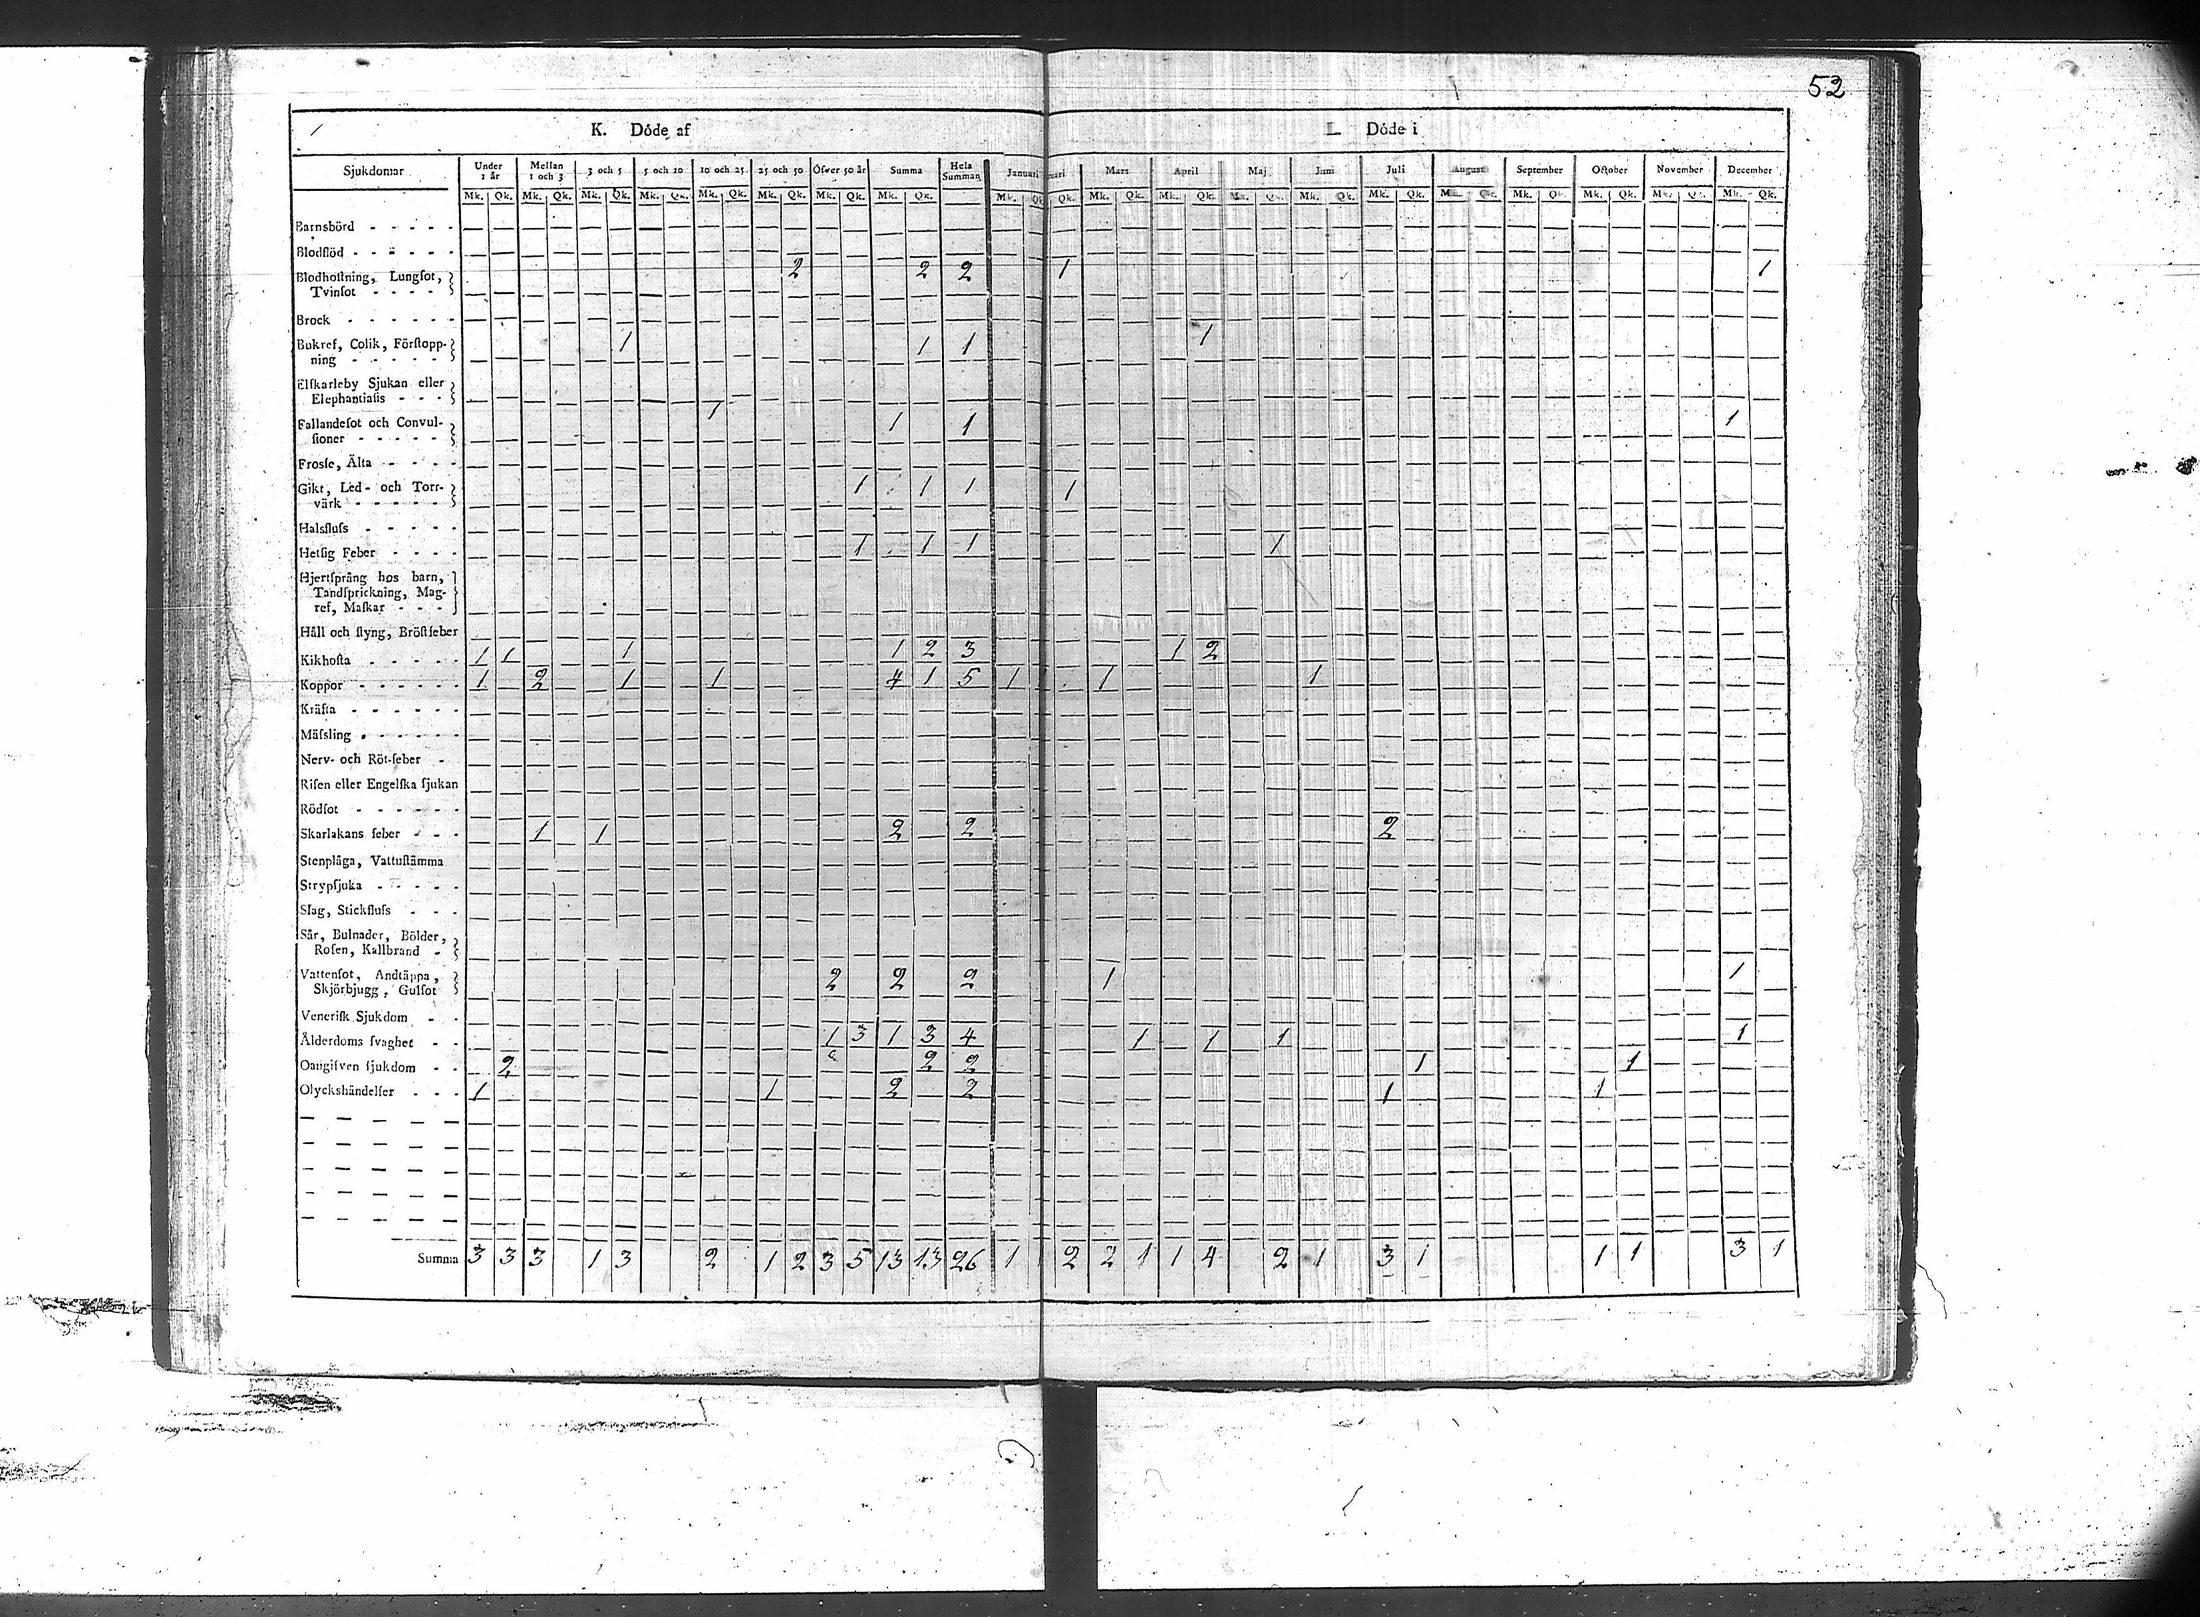 52
K. Döde af
L. Döde i
Sjukdomar Under 1 år Mellan 1 och 3 3 och 5 5 och 10 10 och 25 25 och 50 Öfver 50 år Summa Hela Summan Januari Mars April Maj Juni Juli August September October November December
Mk. Qk. Mk. Qk. Mk. Qk. Mk. Qk. Mk. Qk. Mk. Qk. Mk. Qk. Mk. Qk. Mk. Qk. Mk. Qk. Mk. Qk. Mk. Qk. Mk. Qk. Mk. Qk. Mk. Qk. Mk. Qk. Mk. Qk. Mk. Qk. Mk. Qk. Mk. Qk.
Barnsbörd
Blodflöd
Blodhostning, Lungsot, 2 2 2 1 1
Tvinsot
Brock
Bukref, Colik, Förstopp- 1 1 1 1
ning
Elfkarleby Sjukan eller
Elephantiasis
Fallandesot och Convul- 1 1 1 1
sioner
Frosse, Älta
Gikt, Led- och Torr- 1 1 1 1
värk
Halsfluss
Hetsig Feber 1 1 1 1
Hjertsprång hos barn,
Tandsprickning, Mag-
ref, Maskar
Håll och styng, Bröstfeber
Kikhosta 1 1 1 1 2 3 1 2
Koppor 1 2 1 1 4 1 5 1 1 1 1
Kräfta
Mässling
Nerv- och Röt-feber
Risen eller Engelska sjukan
Rödsot
Skarlakans feber 1 1 2 2 2
Stenplåga, Vattustämma
Strypsjuka
Slag, Stickfluss
Sår, Bulnader, Bölder,
Rosen, Kallbrand
Vattensot, Andtäppa, 2 2 2 1 1
Skjörbjugg, Gulsot
Venerisk Sjukdom
Ålderdoms svaghet 1 3 1 3 4 1 1 1 1
Oangifven sjukdom 2 2 2 1 1
Olyckshändelser 1 1 2 2 1 1
Summa 3 3 3 1 3 2 1 2 3 5 13 13 26 1 2 2 1 1 4 2 1 3 1 1 1 3 1